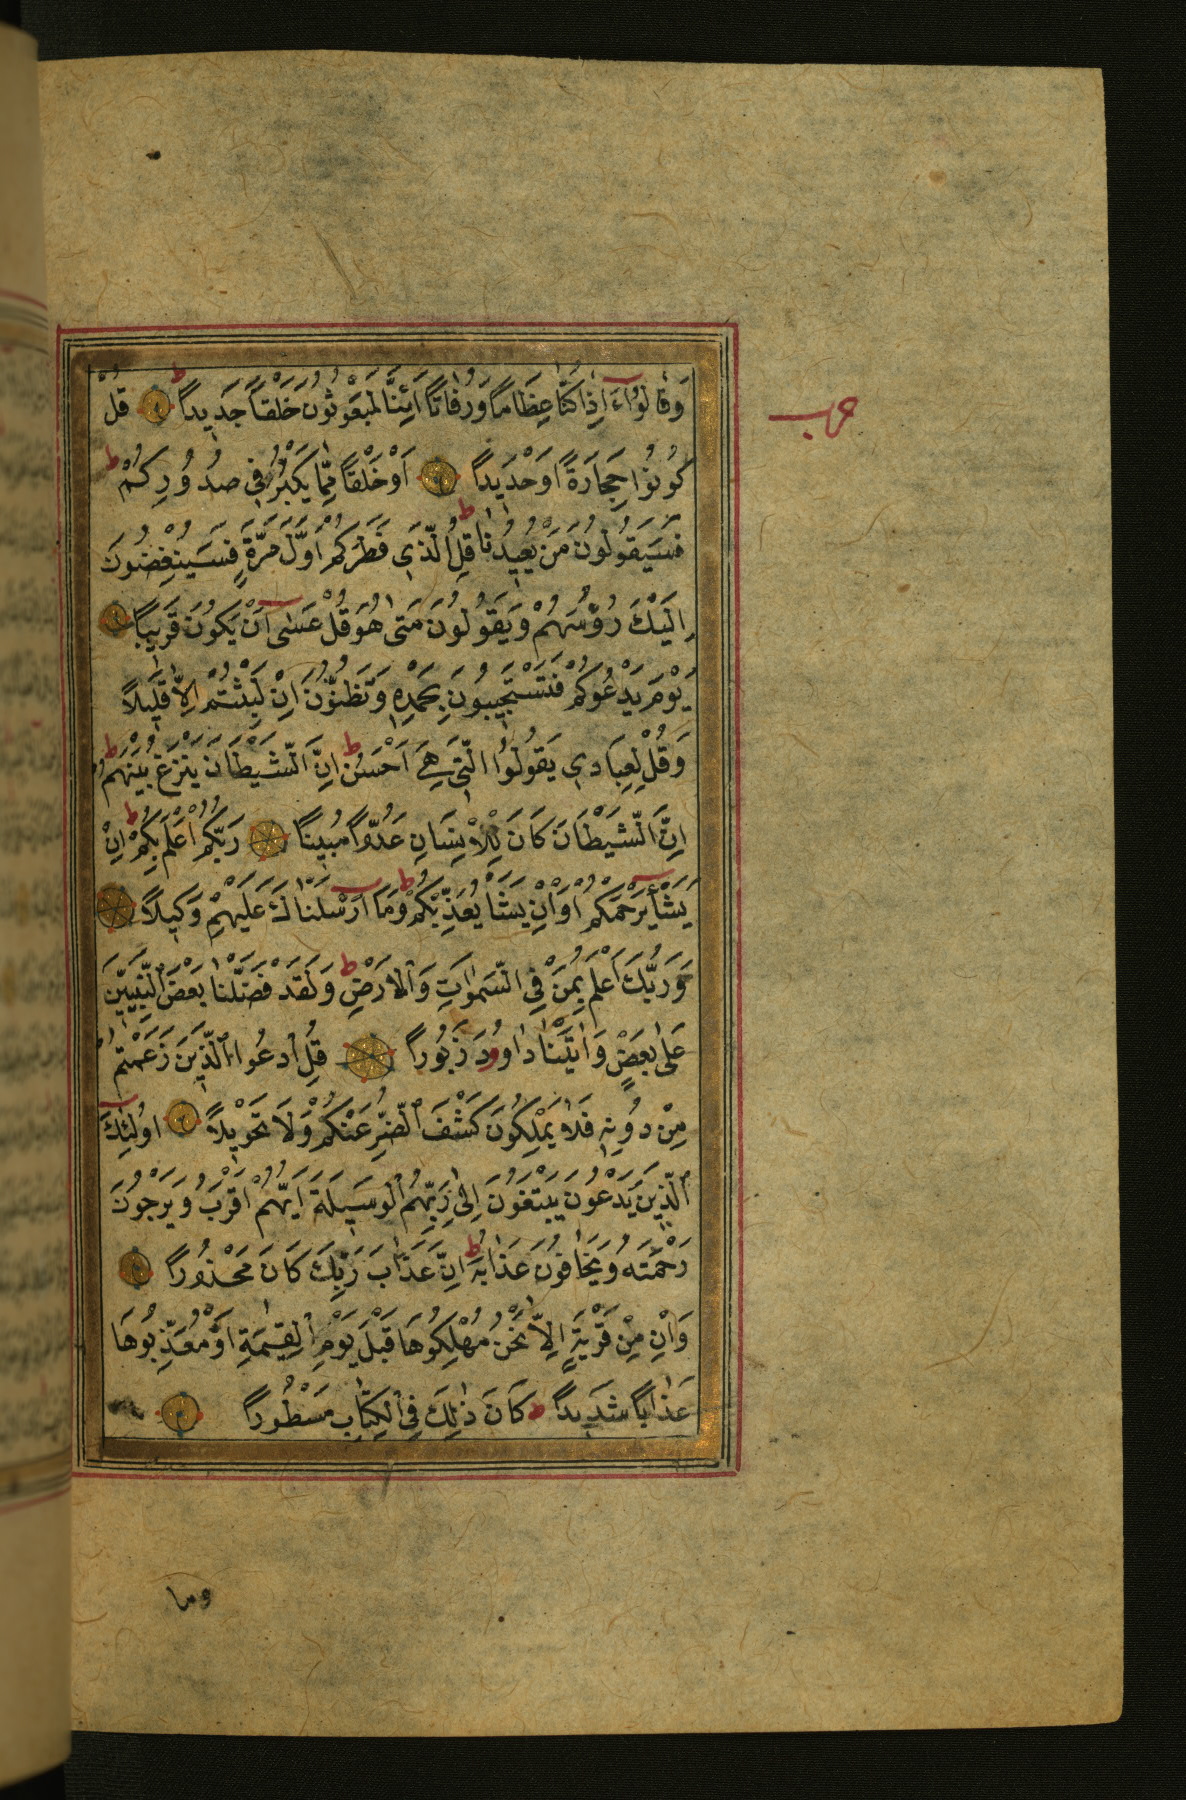 وَقَالُوٓاءَ اِذَا كُنَّا عِظَامًا وَرُفَاتًا اَئِنَّا لَمَبْعُوثُونَ خَلْقًا جَدِيدًا ط قُلْ
حزب
كُونُوا حِجَارَةً اَوْ حَدِيدًا اَوْ خَلْقًا مِمَّا يَكْبُرُ فِي صُدُورِكُمْ ط
فَسَيَقُولُونَ مَنْ يُعِيدُنَا ط قُلِ الَّذِي فَطَرَكُمْ اَوَّلَ مَرَّةٍ فَسَيُنْغِضُونَ
اِلَيْكَ رُؤُسَهُمْ وَيَقُولُونَ مَتٰى هُوَ قُلْ عَسٰٓى اَنْ يَكُونَ قَرِيبًا
يَوْمَ يَدْعُوكُمْ فَتَسْتَجِيبُونَ بِحَمْدِهٖ وَتَظُنُّونَ اِنْ لَبِثْتُمْ اِلَّا قَلِيلًا
وَقُلْ لِعِبَادِي يَقُولُوا الَّتِي هِيَ اَحْسَنُ ط اِنَّ الشَّيْطَانَ يَنْزَغُ بَيْنَهُمْ ط
اِنَّ الشَّيْطَانَ كَانَ لِلْاِنْسَانِ عَدُوًّا مُبِينًا رَبُّكُمْ اَعْلَمُ بِكُمْ ط اِنْ
يَشَأْ يَرْحَمْكُمْ اَوْ اِنْ يَشَأْ يُعَذِّبْكُمْ ط وَمَٓا اَرْسَلْنَاكَ عَلَيْهِمْ وَكِيلًا
وَرَبُّكَ اَعْلَمُ بِمَنْ فِي السَّمٰوَاتِ وَالْاَرْضِ ط وَلَقَدْ فَضَّلْنَا بَعْضَ النَّبِيِّينَ
عَلٰى بَعْضٍ وَاٰتَيْنَا دَاوُودَ زَبُورًا قُلِ ادْعُوا الَّذِينَ زَعَمْتُمْ
مِنْ دُونِهٖ فَلَا يَمْلِكُونَ كَشْفَ الضُّرِّ عَنْكُمْ وَلَا تَحْوِيلًا اُولٰٓئِكَ
الَّذِينَ يَدْعُونَ يَبْتَغُونَ اِلٰى رَبِّهِمُ الْوَسِيلَةَ اَيُّهُمْ اَقْرَبُ وَيَرْجُونَ
رَحْمَتَهُ وَيَخَافُونَ عَذَابَهُ ط اِنَّ عَذَابَ رَبِّكَ كَانَ مَحْذُورًا
وَاِنْ مِنْ قَرْيَةٍ اِلَّا نَحْنُ مُهْلِكُوهَا قَبْلَ يَوْمِ الْقِيٰمَةِ اَوْ مُعَذِّبُوهَا
عَذَابًا شَدِيدًا ط كَانَ ذٰلِكَ فِي الْكِتَابِ مَسْطُورًا
وما